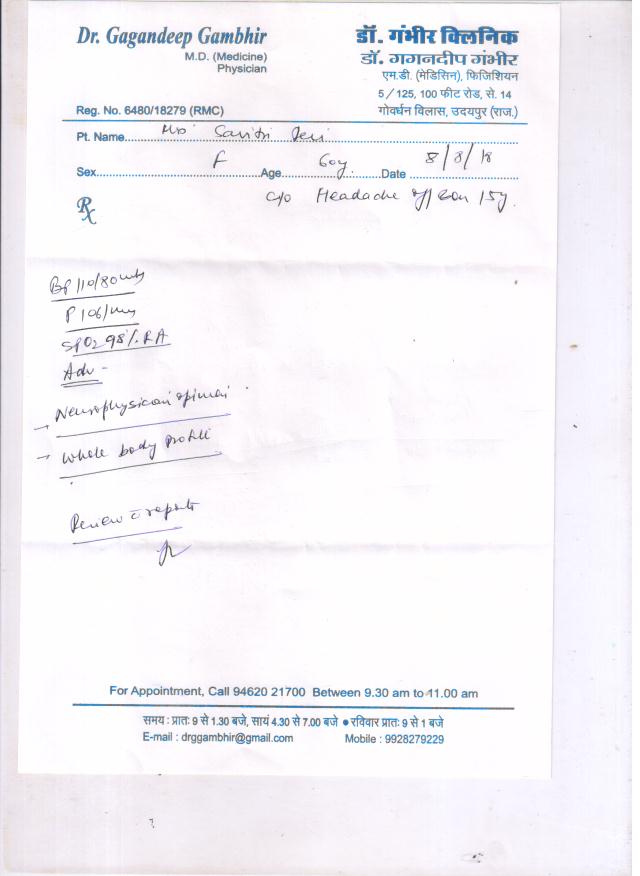 Dr. Gagandeep Gambhir
M.D. (Medicine)
Physician
डॉ. गंभीर क्लिनिक
डॉ. गगनदीप गंभीर
एम.डी. (मेडिसिन), फिजिशियन
5/125, 100 फीट रोड, से. 14
Reg. No. 6480/18279 (RMC)
गोवर्धन विलास, उदयपुर (राज.)
Pt. Name Mrs Savitri Devi
Sex F Age 60y. Date 8/8/18
Rx
c/o Headache off/on 15y.
BP 110/80
P 106/
SPO2 98% RA
Adv -
→ Neurophysician opinion
→ Whole body profile
Review c̄ reports
For Appointment, Call 94620 21700 Between 9.30 am to 11.00 am
समय : प्रातः 9 से 1.30 बजे, सायं 4.30 से 7.00 बजे ● रविवार प्रातः 9 से 1 बजे
E-mail : drggambhir@gmail.com Mobile : 9928279229